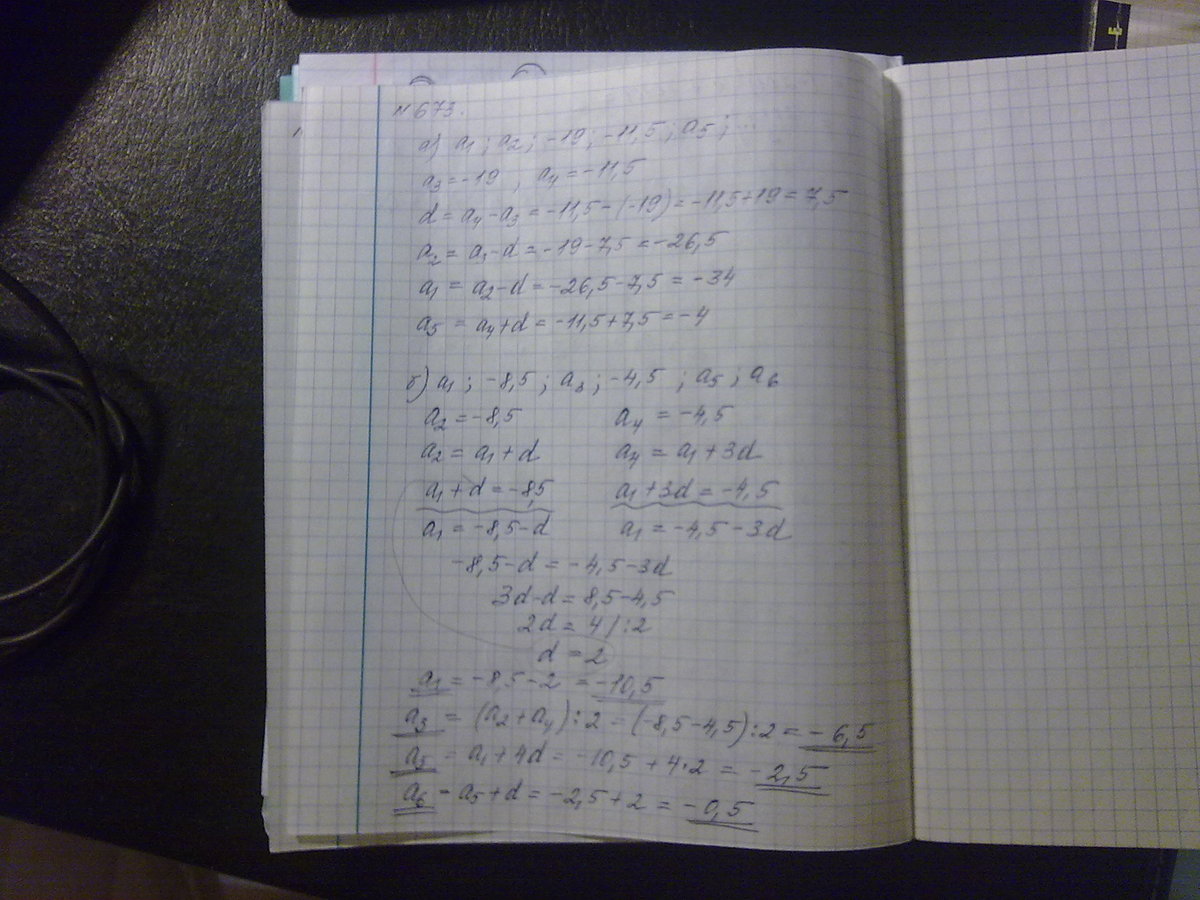 N 673.
а) a1 ; a2 ; -19 ; -11,5 ; a5 ; ...
a3 = -19 , a4 = -11,5
d = a4 - a3 = -11,5 - (-19) = -11,5 + 19 = 7,5
a2 = a3 - d = -19 - 7,5 = -26,5
a1 = a2 - d = -26,5 - 7,5 = -34
a5 = a4 + d = -11,5 + 7,5 = -4
б) a1 ; -8,5 ; a3 ; -4,5 ; a5 ; a6
a2 = -8,5 a4 = -4,5
a2 = a1 + d a4 = a1 + 3d
a1 + d = -8,5 a1 + 3d = -4,5
a1 = -8,5 - d a1 = -4,5 - 3d
-8,5 - d = -4,5 - 3d
3d - d = 8,5 - 4,5
2d = 4 / : 2
d = 2
a1 = -8,5 - 2 = -10,5
a3 = (a2 + a4) : 2 = (-8,5 - 4,5) : 2 = -6,5
a5 = a1 + 4d = -10,5 + 4·2 = -2,5
a6 = a5 + d = -2,5 + 2 = -0,5